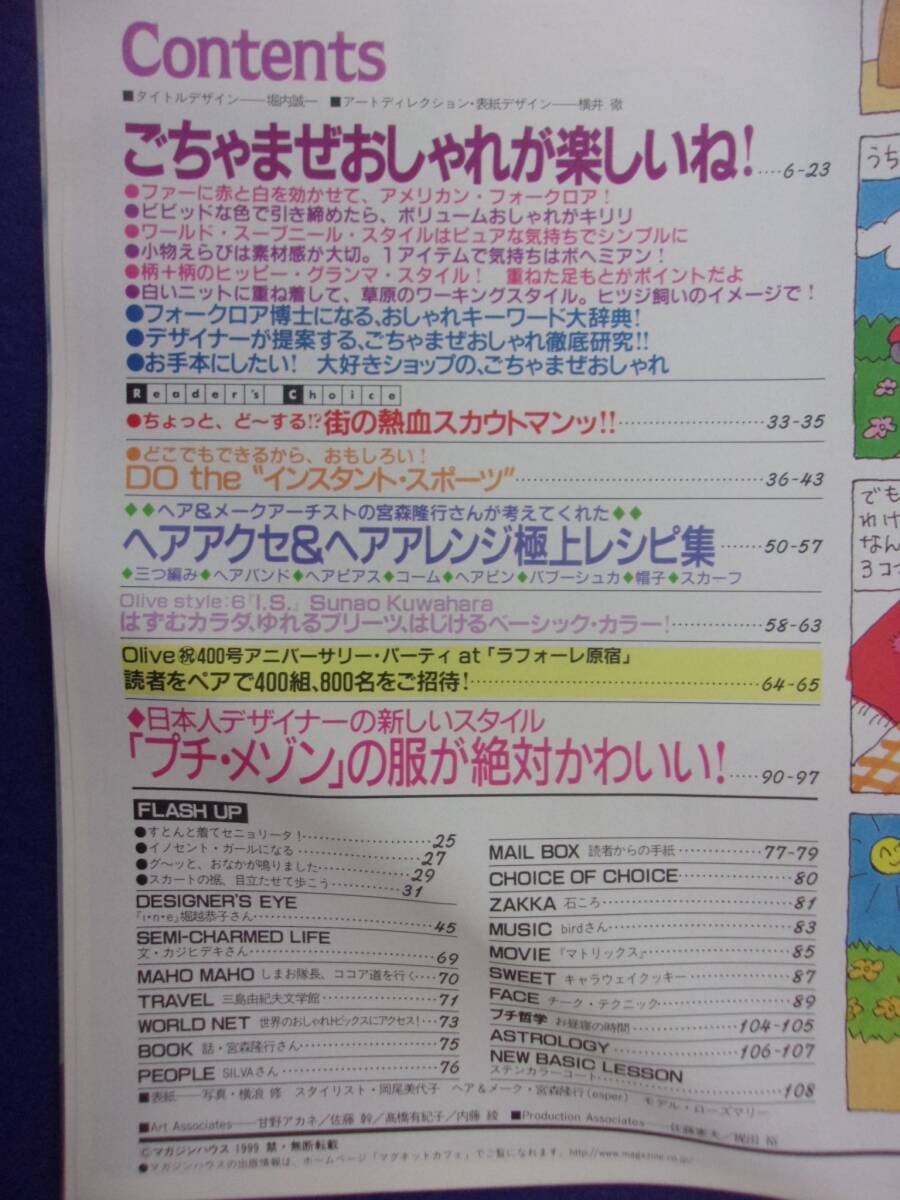 Contents
■タイトルデザイン──堀内誠一 ■アートディレクション・表紙デザイン──横井 徹
ごちゃまぜおしゃれが楽しいね!‥‥6-23
●ファーに赤と白を効かせて、アメリカン・フォークロア!
●ビビッドな色で引き締めたら、ボリュームおしゃれがキリリ
●ワールド・スーブニール・スタイルはピュアな気持ちでシンプルに
●小物えらびは素材感が大切。1アイテムで気持ちはボヘミアン!
●柄+柄のヒッピー・グランマ・スタイル! 重ねた足もとがポイントだよ
●白いニットに重ね着して、草原のワーキングスタイル。ヒツジ飼いのイメージで!
●フォークロア博士になる、おしゃれキーワード大辞典!
●デザイナーが提案する、ごちゃまぜおしゃれ徹底研究!!
●お手本にしたい! 大好きショップの、ごちゃまぜおしゃれ
Reader's Choice
●ちょっと、ど〜する!?街の熱血スカウトマンッ!!‥‥33-35
●どこでもできるから、おもしろい!
DO the "インスタント・スポーツ"‥‥36-43
◆◆ヘア&メークアーチストの宮森隆行さんが考えてくれた◆◆
ヘアアクセ&ヘアアレンジ極上レシピ集‥‥50-57
◆三つ編み◆ヘアバンド◆ヘアピアス◆コーム◆ヘアピン◆バブーシュカ◆帽子◆スカーフ
Olive style:6『I.S.』 Sunao Kuwahara
はずむカラダ、ゆれるプリーツ、はじけるベーシック・カラー!‥‥58-63
Olive㊗400号アニバーサリー・パーティ at「ラフォーレ原宿」
読者をペアで400組、800名をご招待!‥‥64-65
◆日本人デザイナーの新しいスタイル
「プチ・メゾン」の服が絶対かわいい!‥‥90-97
FLASH UP
●すとんと着てセニョリータ!‥‥25
●イノセント・ガールになる‥‥27
●グ〜ッと、おなかが鳴りました‥‥29
●スカートの裾、目立たせて歩こう‥‥31
DESIGNER'S EYE
『ı・n・e』堀越恭子さん‥‥45
SEMI-CHARMED LIFE
文・カジヒデキさん‥‥69
MAHO MAHO しまお隊長、ココア道を行く‥‥70
TRAVEL 三島由紀夫文学館‥‥71
WORLD NET 世界のおしゃれトピックスにアクセス!‥‥73
BOOK 話・宮森隆行さん‥‥75
PEOPLE SILVAさん‥‥76
MAIL BOX 読者からの手紙‥‥77-79
CHOICE OF CHOICE‥‥80
ZAKKA 石ころ‥‥81
MUSIC birdさん‥‥83
MOVIE 『マトリックス』‥‥85
SWEET キャラウェイクッキー‥‥87
FACE チーク・テクニック‥‥89
プチ哲学 お昼寝の時間‥‥104-105
ASTROLOGY‥‥106-107
NEW BASIC LESSON
ステンカラーコート‥‥108
■表紙──写真・横浪 修 スタイリスト・岡尾美代子 ヘア&メーク・宮森隆行(esper) モデル・ローズマリー
■Art Associates──甘野アカネ/佐藤 幹/髙橋有紀子/内藤 綾 ■Production Associates──佐藤憲夫/
©マガジンハウス 1999 禁・無断転載
●マガジンハウスの出版情報は、ホームページ「マグネットカフェ」でご覧になれます。http://www.magazine.co.jp/
うち
でも
れけ
なん
3コマ